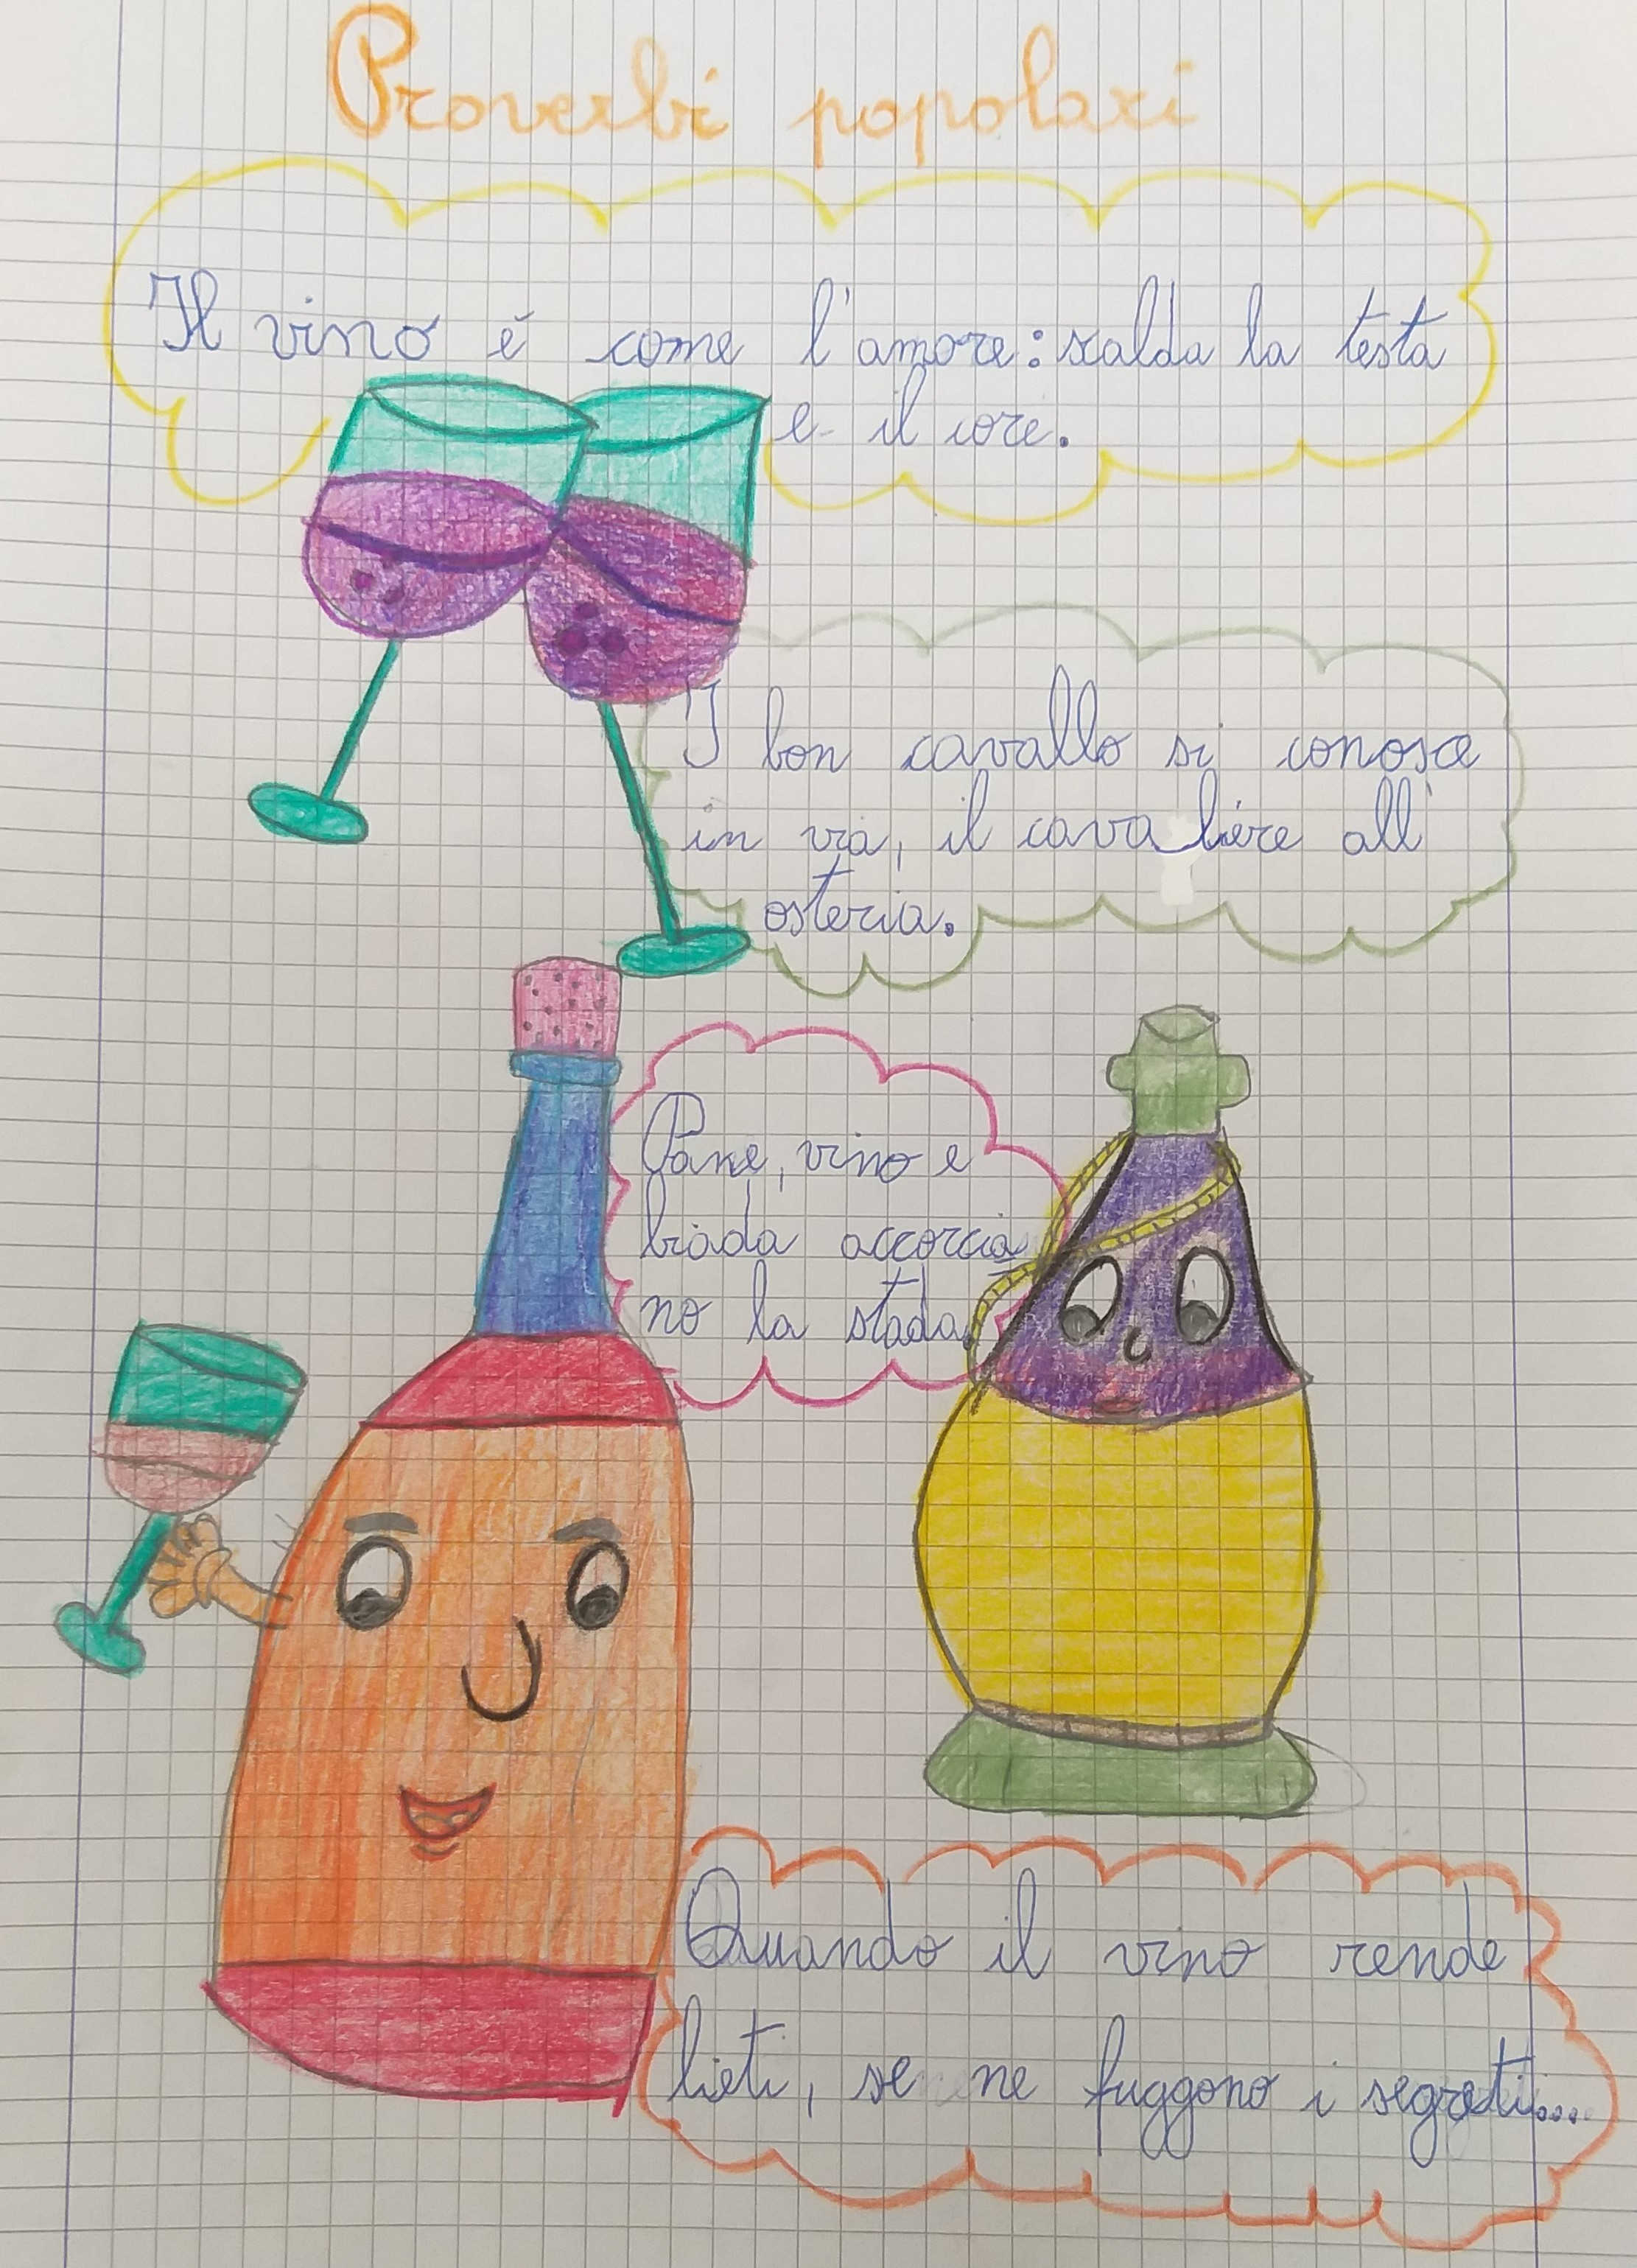 Proverbi popolari
Il vino é come l'amore: scalda la testa
e il core.
I bon cavallo si conosce
in via, il cavaliére all'
osteria.
Pane, vino e
biada accorcia
no la stada.
Quando il vino rende
lieti, se ne fuggono i segreti...